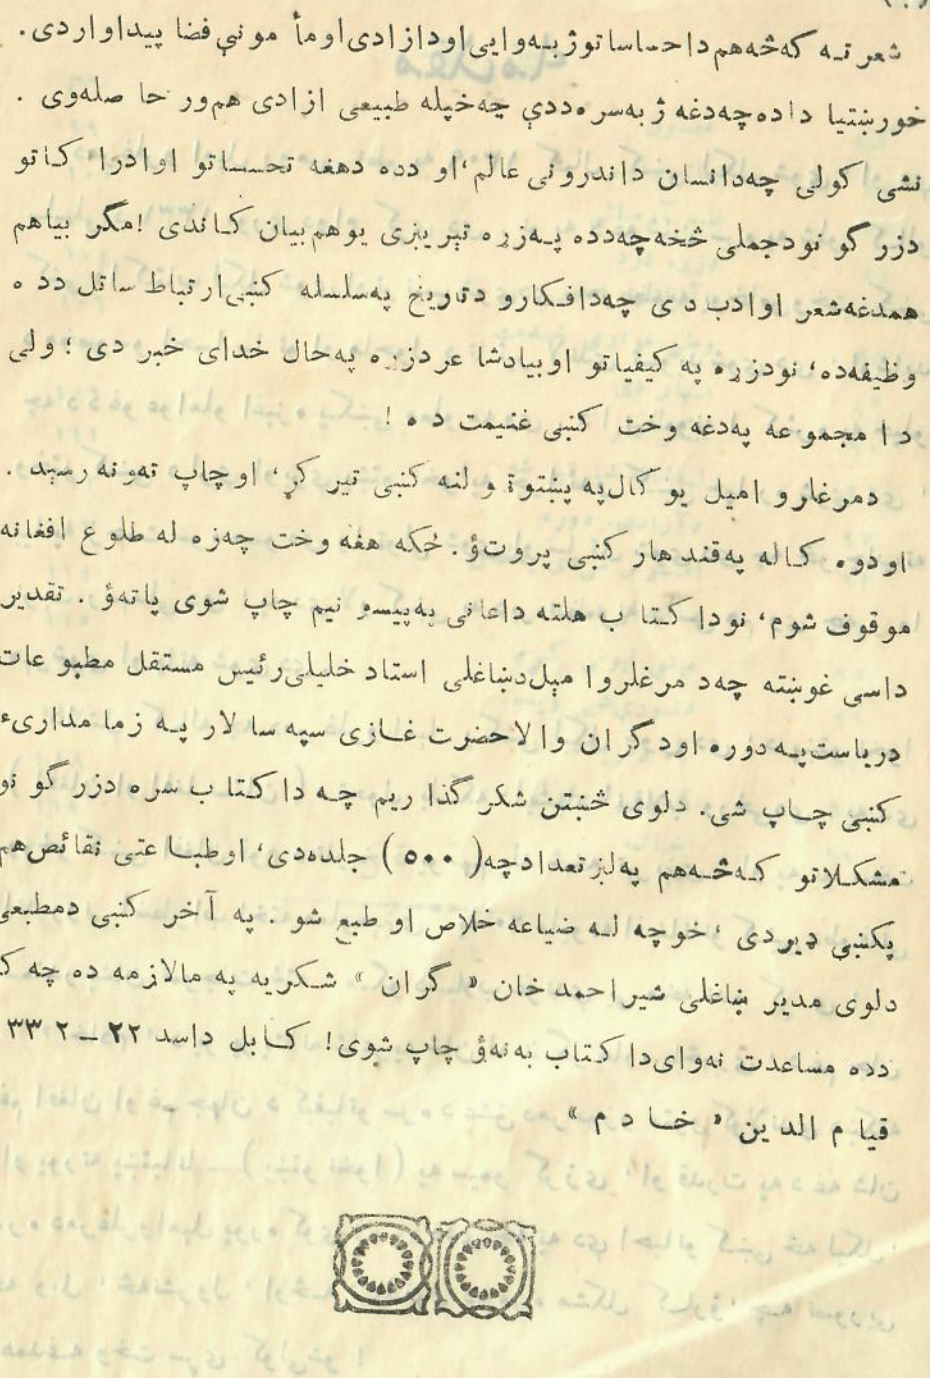 شعر ته که څه هم د احساساتو ژ به وایی او د ازادی او مأ مونې فضا پیداوار دی.
خورښتیا داده چه دغه ژ به سر ه ددې چه خپله طبیعی ازادی هم ور حا صله وی .
نشی کولی چه دانسان داندرونی عالم، او دده دهغه تحسساتو او ادرا کاتو
دزر گو نو دجملی څخه چه دده په زړه تېر یږی یو هم بیان کاندی! مگر بیا هم
همدغه شعر او ادب د ی چه دافکارو دتاریخ په سلسله کښی ارتباط ساتل دد ه
وظیفه ده، نو دزړه په کیفیاتو او بیا دشا عر دزړه په حال خدای خبر دی؛ ولی
د ا مجمو عه په دغه وخت کښی غنیمت د ه !
دمرغلرو امیل یو کال په پښتو ټو لنه کښی تیر کړ، او چاپ ته و نه رسید .
او دوه کاله په قند هار کښی پروت ؤ. ځکه هغه وخت چه زه له طلوع افغانه
موقوف شوم، نو دا کتا ب هلته داعانی په پیسو نیم چاپ شوی پاته ؤ . تقدیر
داسی غوښته چه د مرغلرو امېل دښاغلی استاد خلیلی رئیس مستقل مطبو عات
دریاست په دوره او د گر ان وا لا حضرت غازی سپه سا لار په زما مداریٔ
کښی چاپ شی. دلوی څښتن شکر گذا ریم چه دا کتا ب سره دزر گو نو
مشکلاتو که څه هم په لږ تعداد چه (۵۰۰) جلده دی، او طبا عتی نقائص هم
پکښی ډیر دی، خو چه له ضیاعه خلاص او طبع شو . په آخر کښی دمطبعی
دلوی مدیر ښاغلی شیر احمد خان « گران » شکریه په مالازمه ده چه ک
دده مساعدت نه وای دا کتاب به نه ؤ چاپ شوی! کابل داسد ۲۲ – ۲ ۳۳
قیا م الد ین « خا د م »